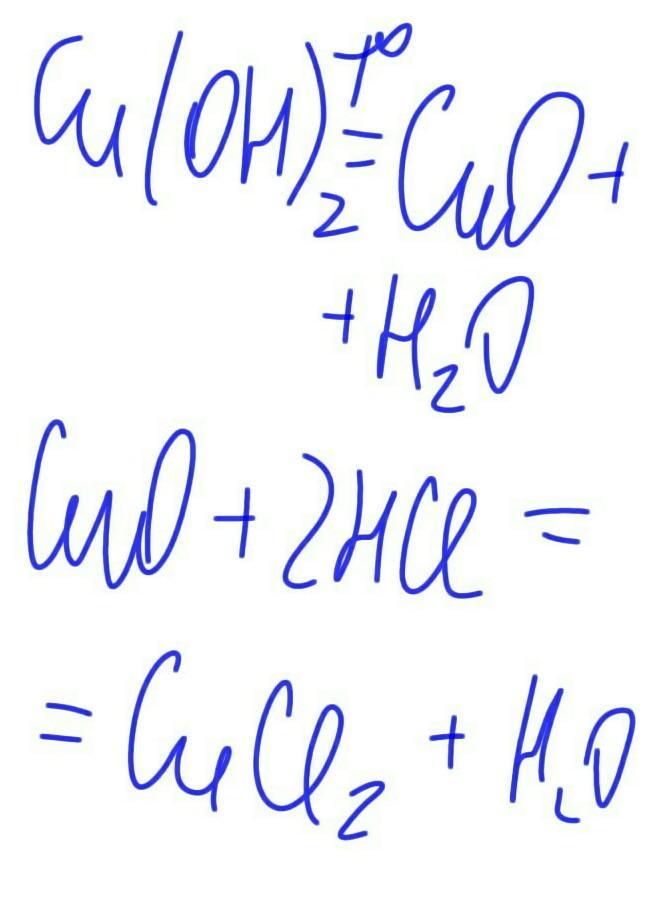 Cu(OH)₂ =t° CuO +
+ H₂O
CuO + 2HCl =
= CuCl₂ + H₂O